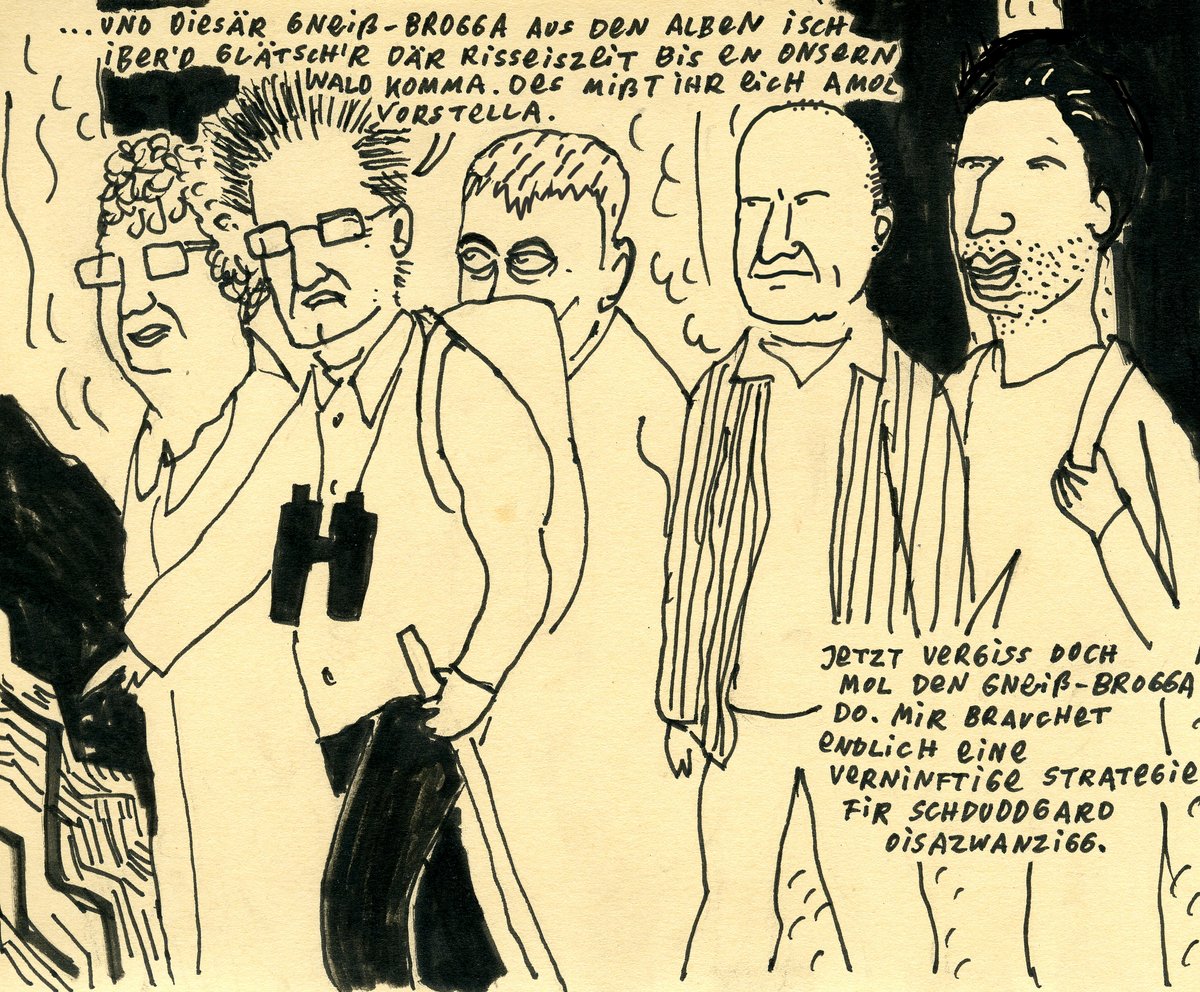 ...UND DIESÄR GNEIß-BROGGA AUS DEN ALBEN ISCH
IBER'D GLÄTSCH'R DÄR RISSEISZEIT BIS EN ONSERN
WALD KOMMA. DES MIßT IHR EICH AMOL
VORSTELLA.
JETZT VERGISS DOCH
MOL DEN GNEIß-BROGGA
DO. MIR BRAUCHET
ENDLICH EINE
VERNINFTIGE STRATEGIE
FIR SCHDUDDGARD
OISAZWANZIGG.